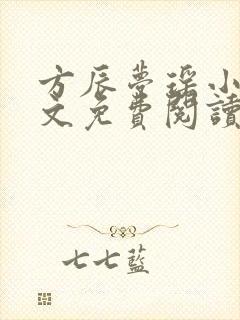 方辰夢瑤小
文免費閱讀
七七藍